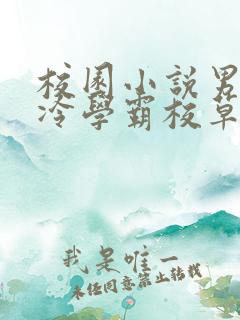 校園小說男
冷學霸校草
我是唯一
未任同意禁止转载